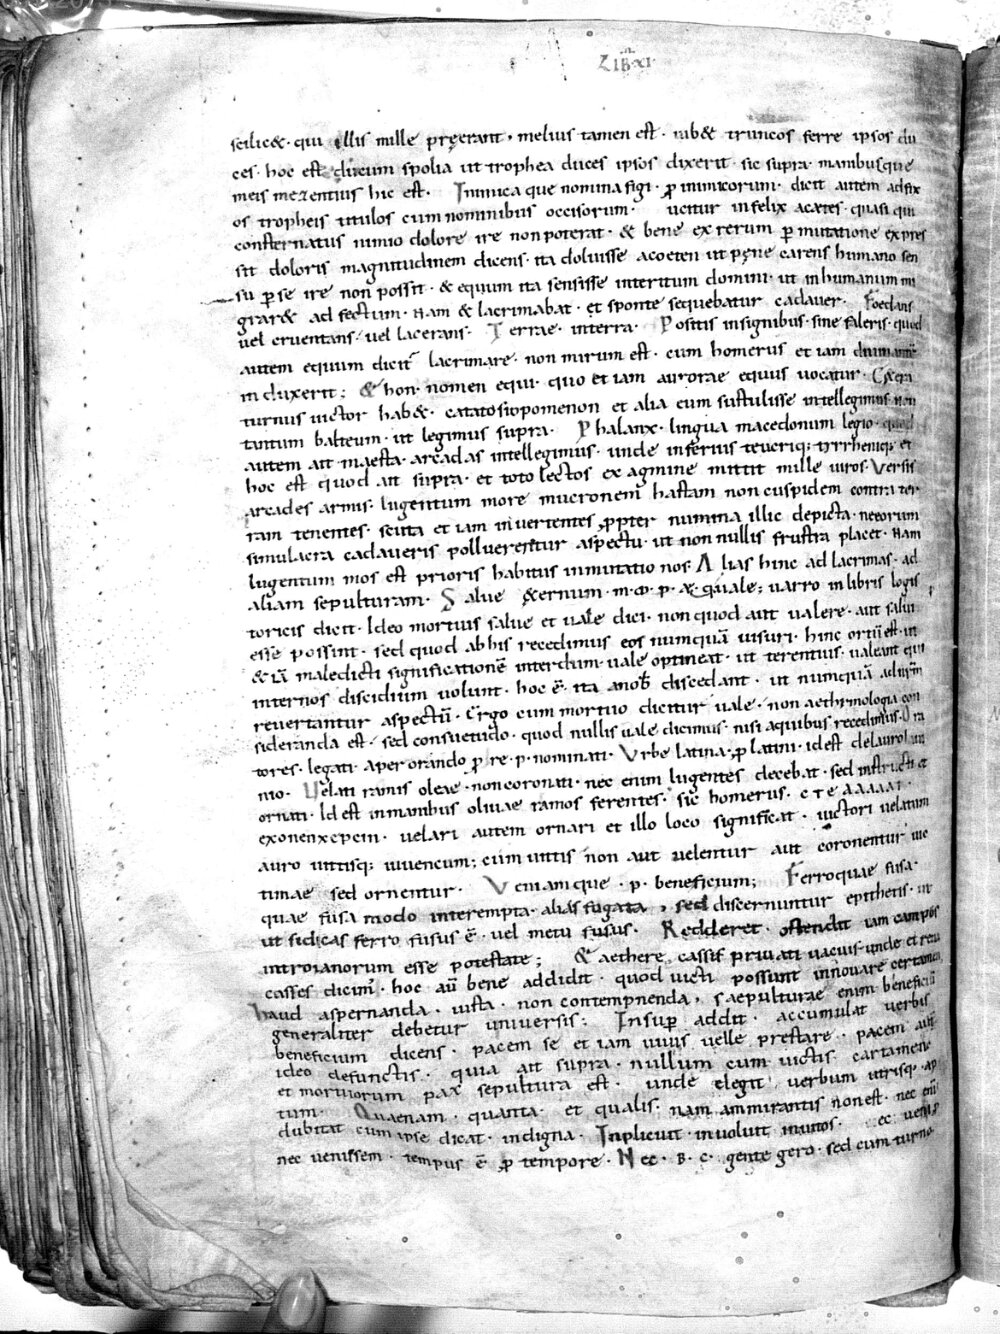 LIB XI
scilic&. qui illis mille preerant, melius tamen est. iub& truncos ferre ipsos du
ces. hoc est ducum spolia ut trophea duces ipsos dixerit. sic supra. manibusque
meis mezentius hic est. Inimica que nomina figi. p inimicorum. dicit autem adfix
os tropheis titulos cum nominibus occisorum. ucitur infelix acetes. quasi qui
consternatus nimio dolore ire non poterat. & bene ex rerum p mutatione expres
sit doloris magnitudinem dicens. ita doluisse acoeten ut pene carens humano sen
su p se ire non possit. & equum ita sensisse interitum domini. ut inhumanum mi
grar& ad fectum. nam & lacrimabat. et sponte sequebatur cadauer. Foedans
uel cruentans. uel lacerans. Terrae. interra. Positis insignibus. sine faleris. quod
autem equum dicit lacrimare. non mirum est. cum homerus et iam diuinante
induxerit; & hon. nomen equi. quo et iam aurorae equus uocatur. C&era
turnus uictor hab&. catatosiopomenon et alia eum sustulisse intellegimus non
tantum balteum. ut legimus supra. Phalanx. lingua macedonum legio. quod
autem ait maesta. arcadas intellegimus. unde inferius teucriq; tyrrheniq; et
hoc est quod ait supra. et toto lectos ex agmine mittit mille uiros. Versis
arcades armis. lugentum more mucronem hastam non cuspidem contra ter
ram tenentes. scuta et iam inuertentes ppter numina illic depicta. neeorum
simulacra cadaueris polluerentur aspectu. ut non nullis frustra placet. nam
lugentum mos est prioris habitus inmutatio nos. Alias hinc ad lacrimas. ad
aliam sepulturam. Salue &ernum. m. m. p. &. q. uale; uarro in libris logis
toricis dicit. Ideo mortuis salue et uale dici. non quod aut ualere. aut salui
esse possint. sed quod abhis recedimus eos numquā uisuri. hinc ortū est. ut
&iā maledicti significationē interdum uale optineat. ut terentius. ualeant qui
internos discidium uolunt. hoc ē. ita anob discedant. ut numquā adnrm
reuertantur aspectū. Ergo cum mortuo dicitur uale. non aethimologia con
sideranda est. sed consuetudo. quod nullis uale dicimus. nisi aquibus recedimus. Ora
tores. legati. aper orando p re. p. nominati. Vrbe latina. p latini. idest delaurolaui
nio. Uelati ramis oleae. non coronati. nec enim lugentes decebat. sed instructi et
ornati. Id est inmanibus oliuae ramos ferentes. sic homerus. c τ e α α α α τ.
exonenxepcin. uelari autem ornari et illo loco significat. uictori uelatum
auro uittisq; iuuencum; cum uittis non aut uelentur aut coronentur uic
timae sed ornentur. Veniamque. p. beneficium; Ferroquae fusa.
quae fusa modo interempta. alias fugata, sed discernuntur epithetis. ut
ut fidicas ferro fusus ē. uel metu fusus. Redderet. ostendit iam campos
introianorum esse potestate; & aethere cassis priuati uacuis. unde et retia
casses dicim. hoc aū bene addidit. quod uicti possunt innouare certamen
haud aspernanda. iusta. non contemnenda, saepulturae enim beneficiū
generaliter debetur uniuersis; Insup addit. accumulat uerbis
beneficium dicens. pacem se et iam uiuis uelle prestare. pacem aut
ideo defunctis. quia ait supra. nullum cum uictis cartamen
et mortuorum pax sepultura est. unde elegit uerbum utrisq. ap
tum. Quaenam. quanta. et qualis. nam ammirantis non est. nec eni
dubitat cum ipse dicat. indigna. Inplicuit. inuoluit. inuitos. ec ueni
nec uenissem. tempus ē p tempore. Nec. B. C. gente gero. sed cum turno